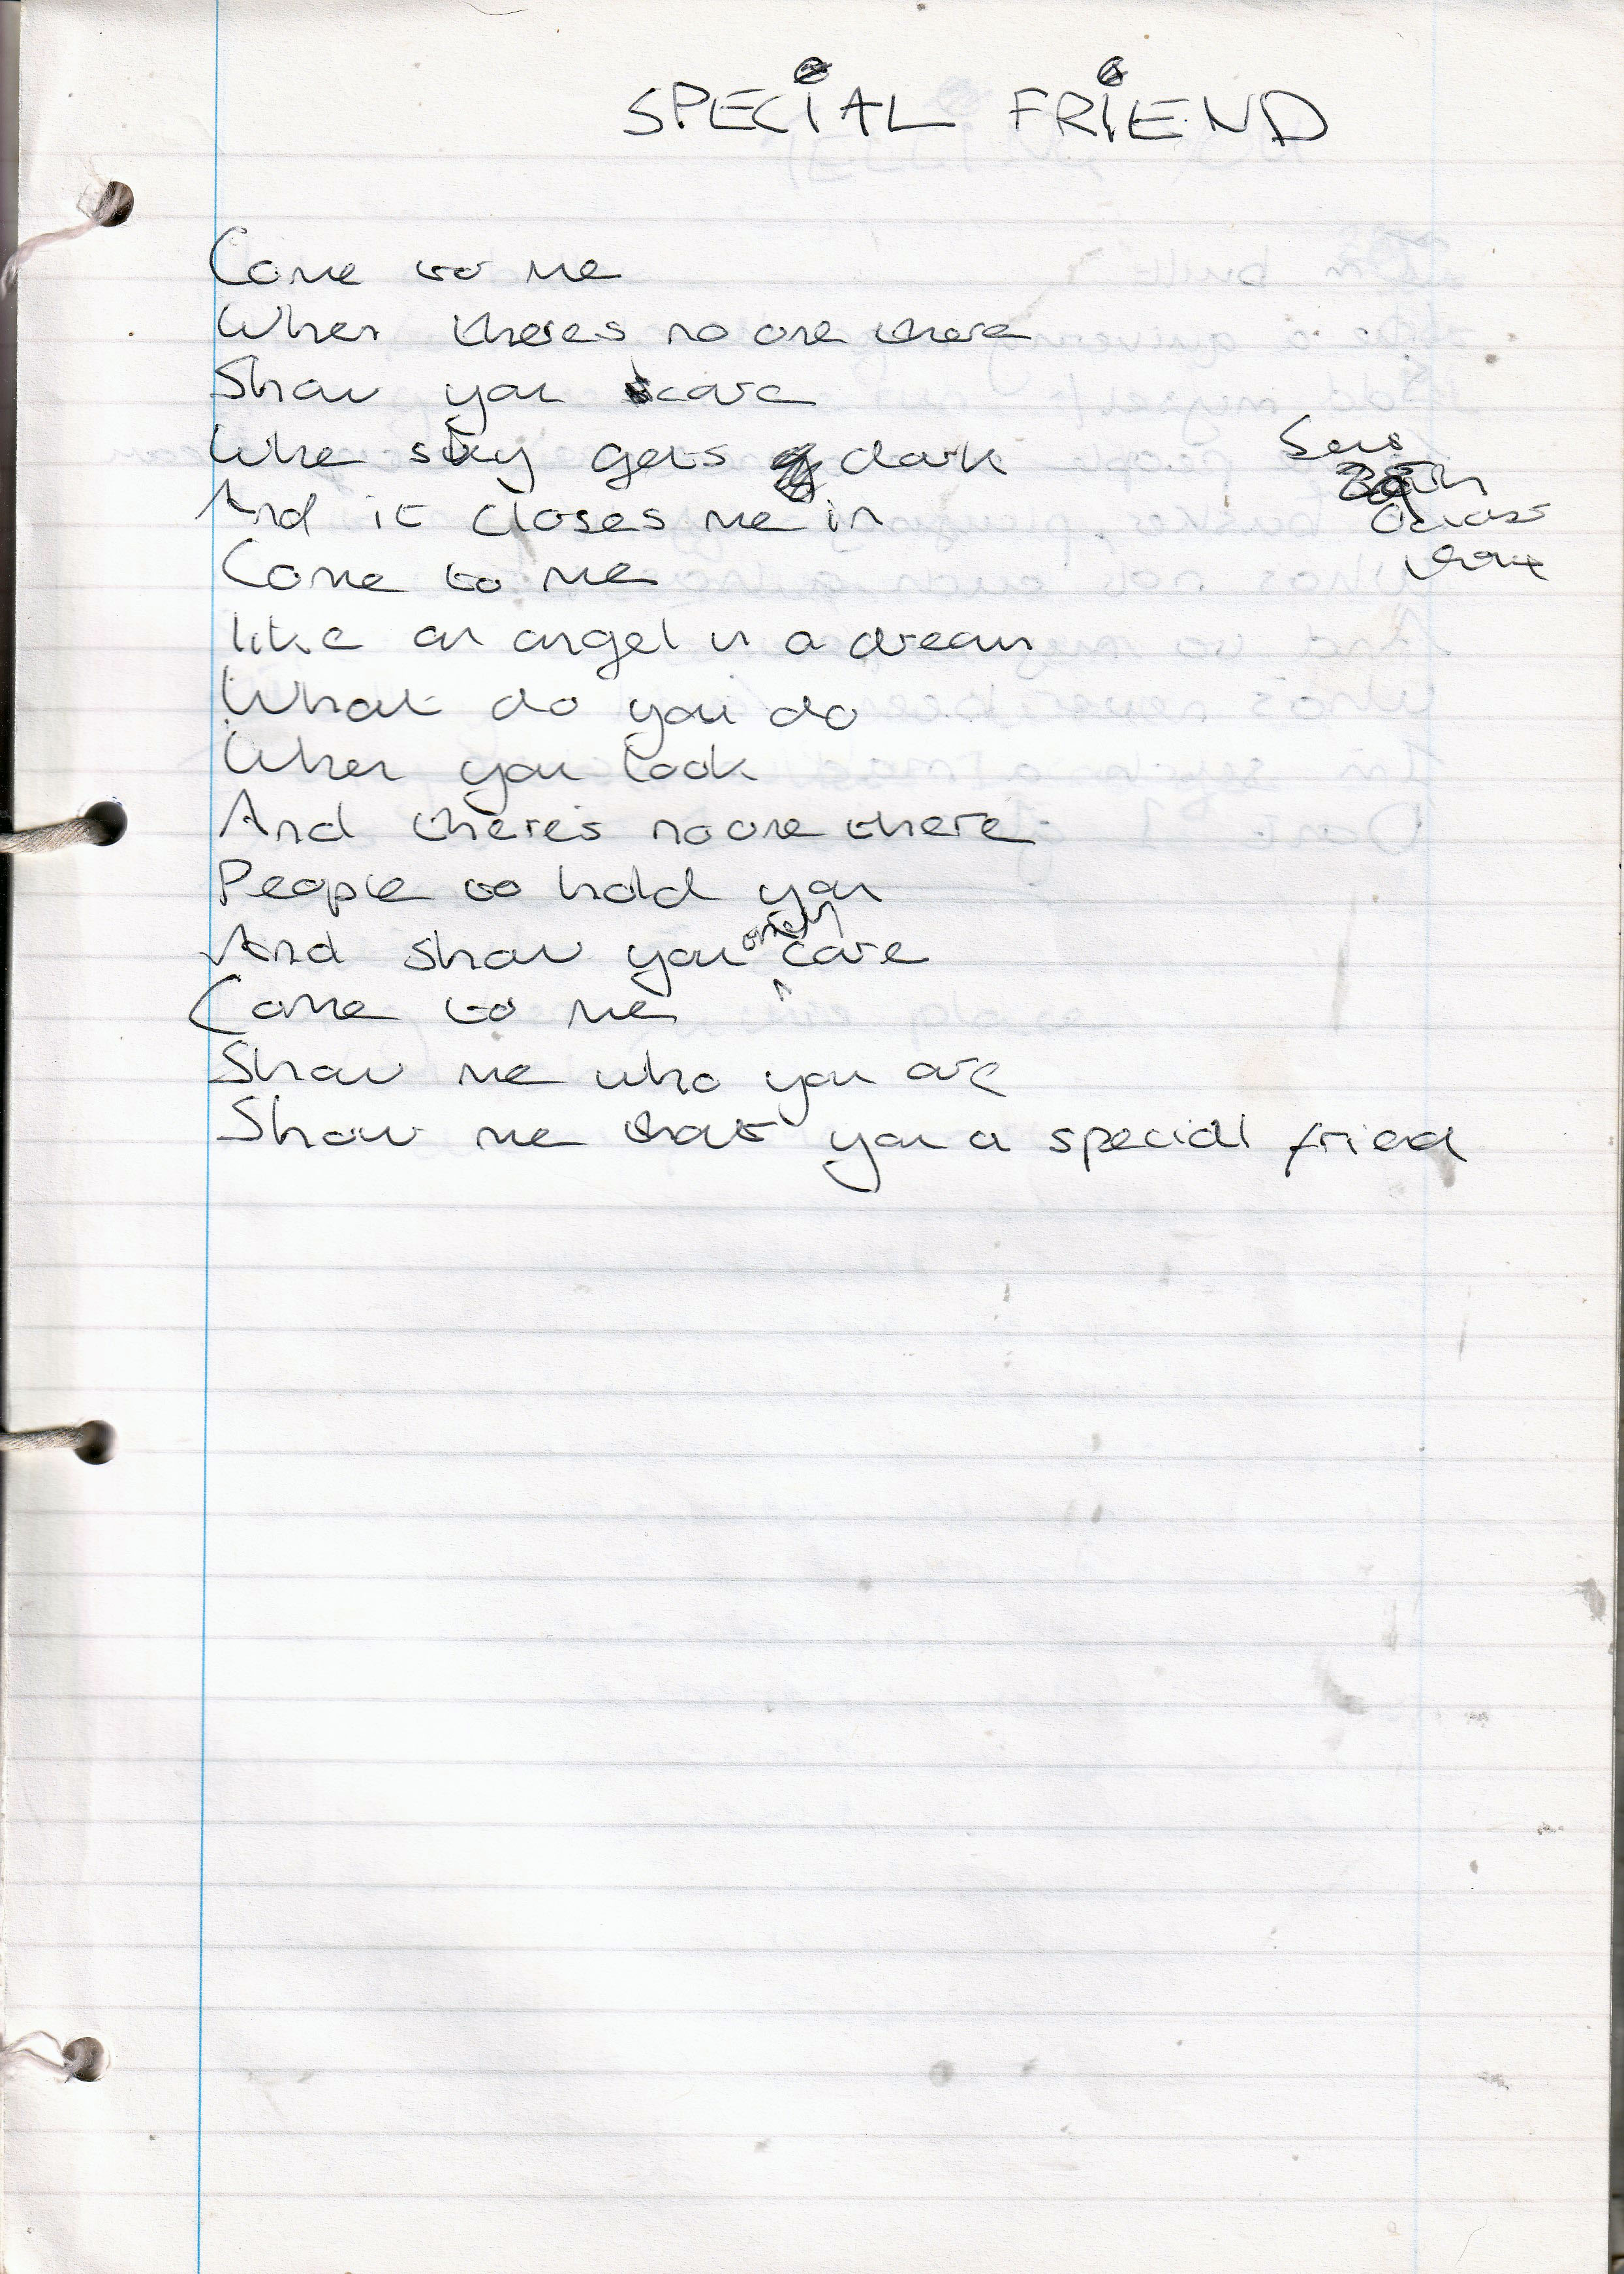 SPECiAL FRiEND
Come to me
When theres no one there
Show you care
Whe sky gets dark
And it closes me in
Come to me
like an angel in a dream
What do you do
When you look
And theres noone there
People to hold you
And show you care
Come to me
Show me who you are
Show me that you a special friend